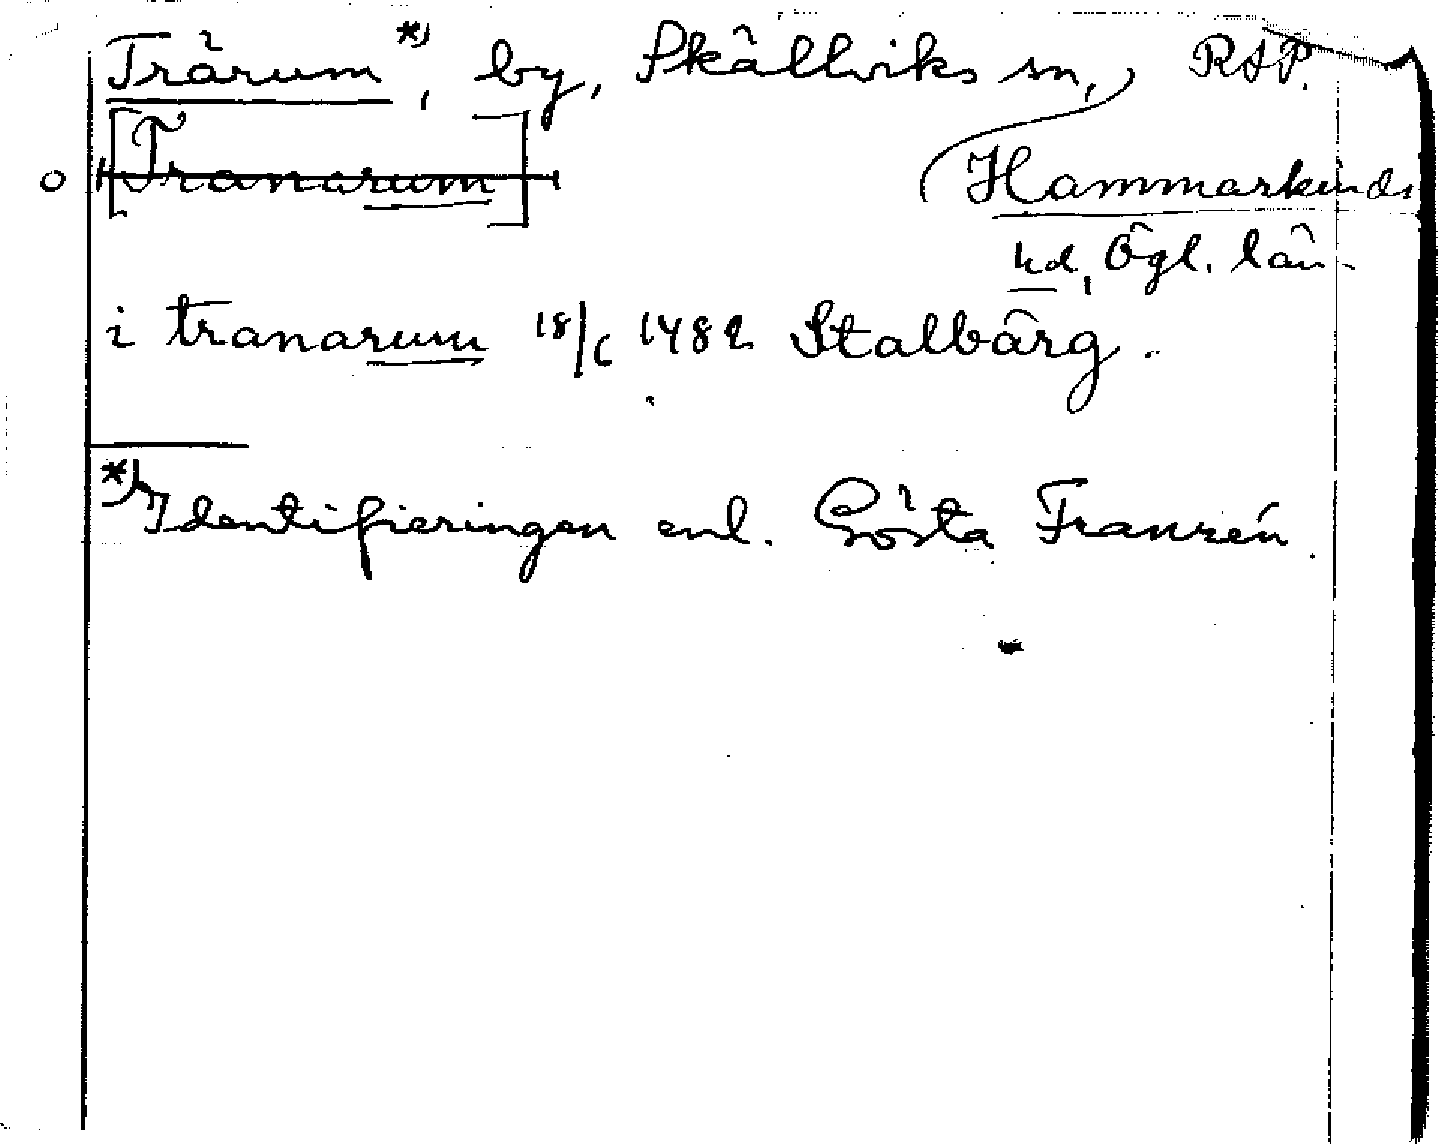 Trärum*), by, Skällviks sn, RAP.
o [Tranarum] Hammarkinds
hd, Ögl. län.
i tranarum 18/6 1482 Stalbärg.
*) Identifieringen enl. Gösta Franzén.